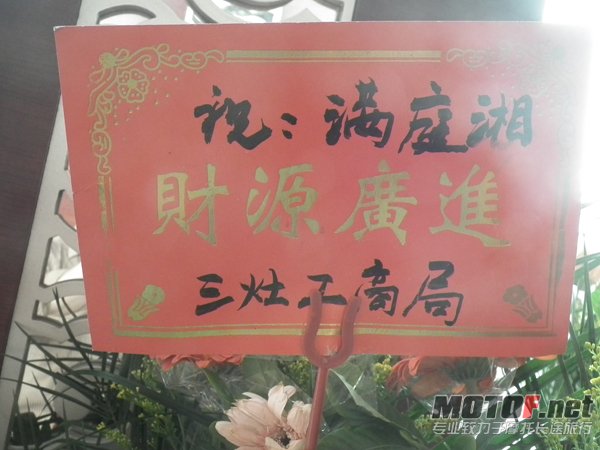 祝：满庭湘
財源廣進
三灶工商局
MOTOF.net
专业致力于摩托长途旅行